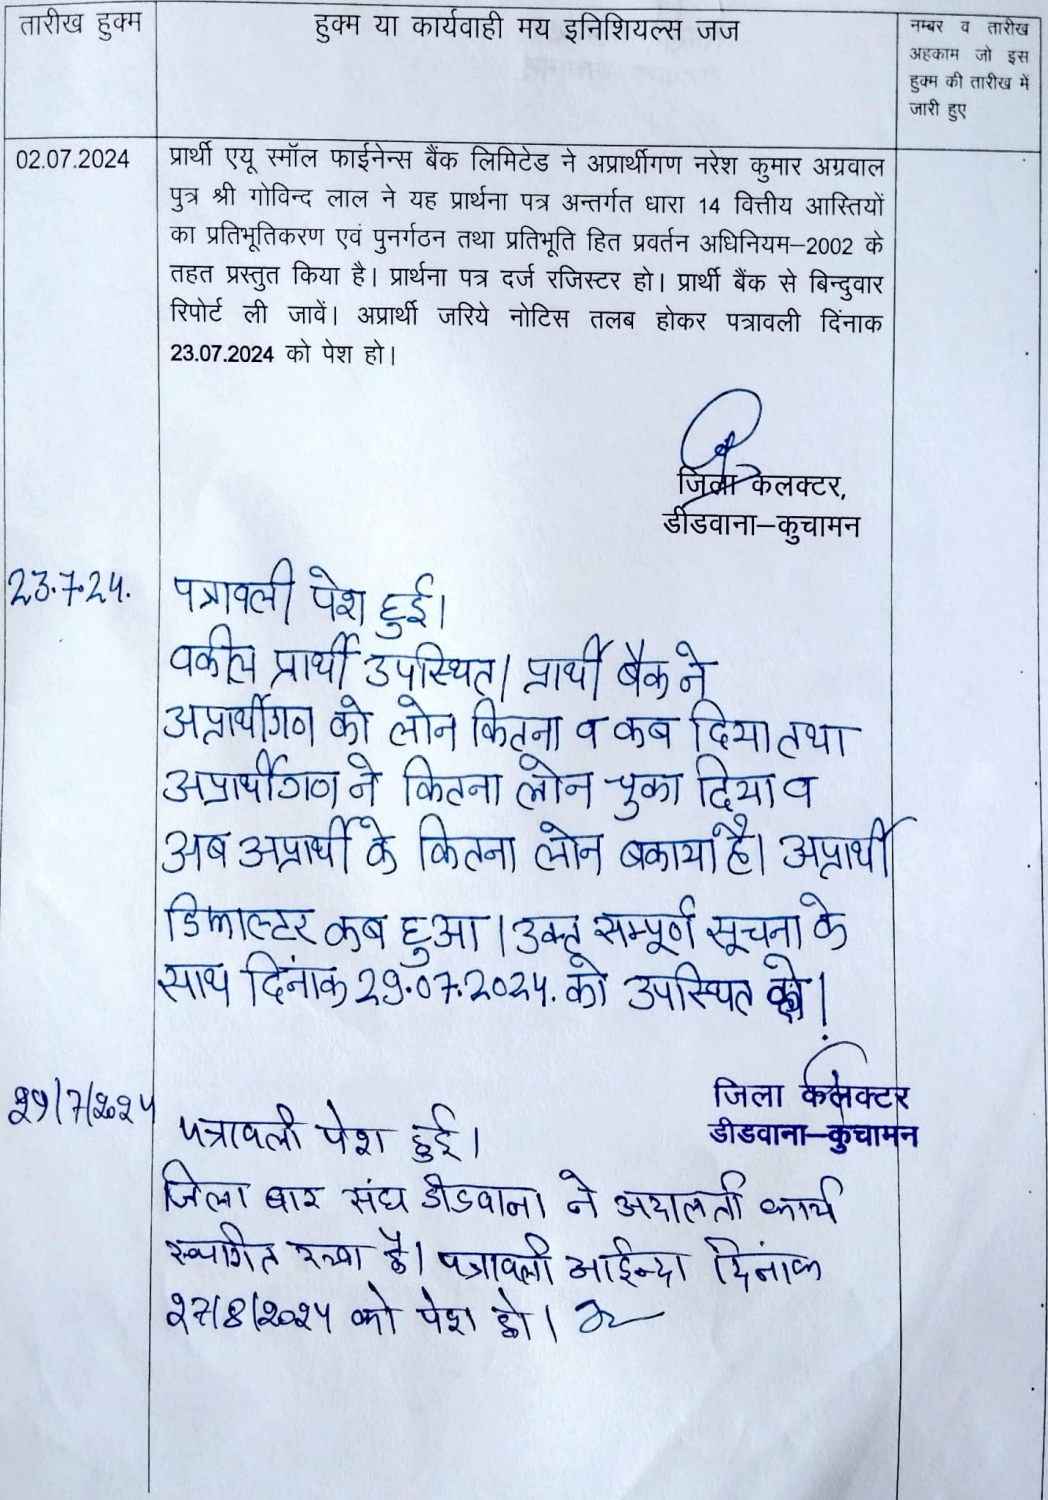 तारीख हुक्म
हुक्म या कार्यवाही मय इनिशियल्स जज
नम्बर व तारीख
अहकाम जो इस
हुक्म की तारीख में
जारी हुए
02.07.2024
प्रार्थी एयू स्मॉल फाईनेन्स बैंक लिमिटेड ने अप्रार्थीगण नरेश कुमार अग्रवाल
पुत्र श्री गोविन्द लाल ने यह प्रार्थना पत्र अन्तर्गत धारा 14 वित्तीय आस्तियों
का प्रतिभूतिकरण एवं पुनर्गठन तथा प्रतिभूति हित प्रवर्तन अधिनियम–2002 के
तहत प्रस्तुत किया है। प्रार्थना पत्र दर्ज रजिस्टर हो। प्रार्थी बैंक से बिन्दुवार
रिपोर्ट ली जावें। अप्रार्थी जरिये नोटिस तलब होकर पत्रावली दिंनाक
23.07.2024 को पेश हो।
जिला कलक्टर,
डीडवाना–कुचामन
23.7.24.
पत्रावली पेश हुई।
वकील प्रार्थी उपस्थित। प्रार्थी बैंक ने
अप्रार्थीगण को लोन कितना व कब दिया तथा
अप्रार्थीगण ने कितना लोन चुका दिया व
अब अप्रार्थी के कितना लोन बकाया है। अप्रार्थी
डिफाल्टर कब हुआ। उक्त सम्पूर्ण सूचना के
साथ दिनांक 29.07.2024. को उपस्थित
जिला कलक्टर
डीडवाना–कुचामन
29/7/2024
पत्रावली पेश हुई।
जिला बार संघ डीडवाना ने अदालती कार्य
स्थगित रखा है। पत्रावली आईन्दा दिनांक
27/8/2024 को पेश हो।